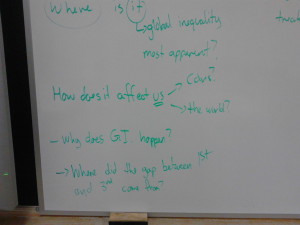 Where is it
↳global inequality
most apparent?
How does it affect us
the world?
- Why does G.I. happen?
→ Where did the gap between 1st
and 3rd come from?